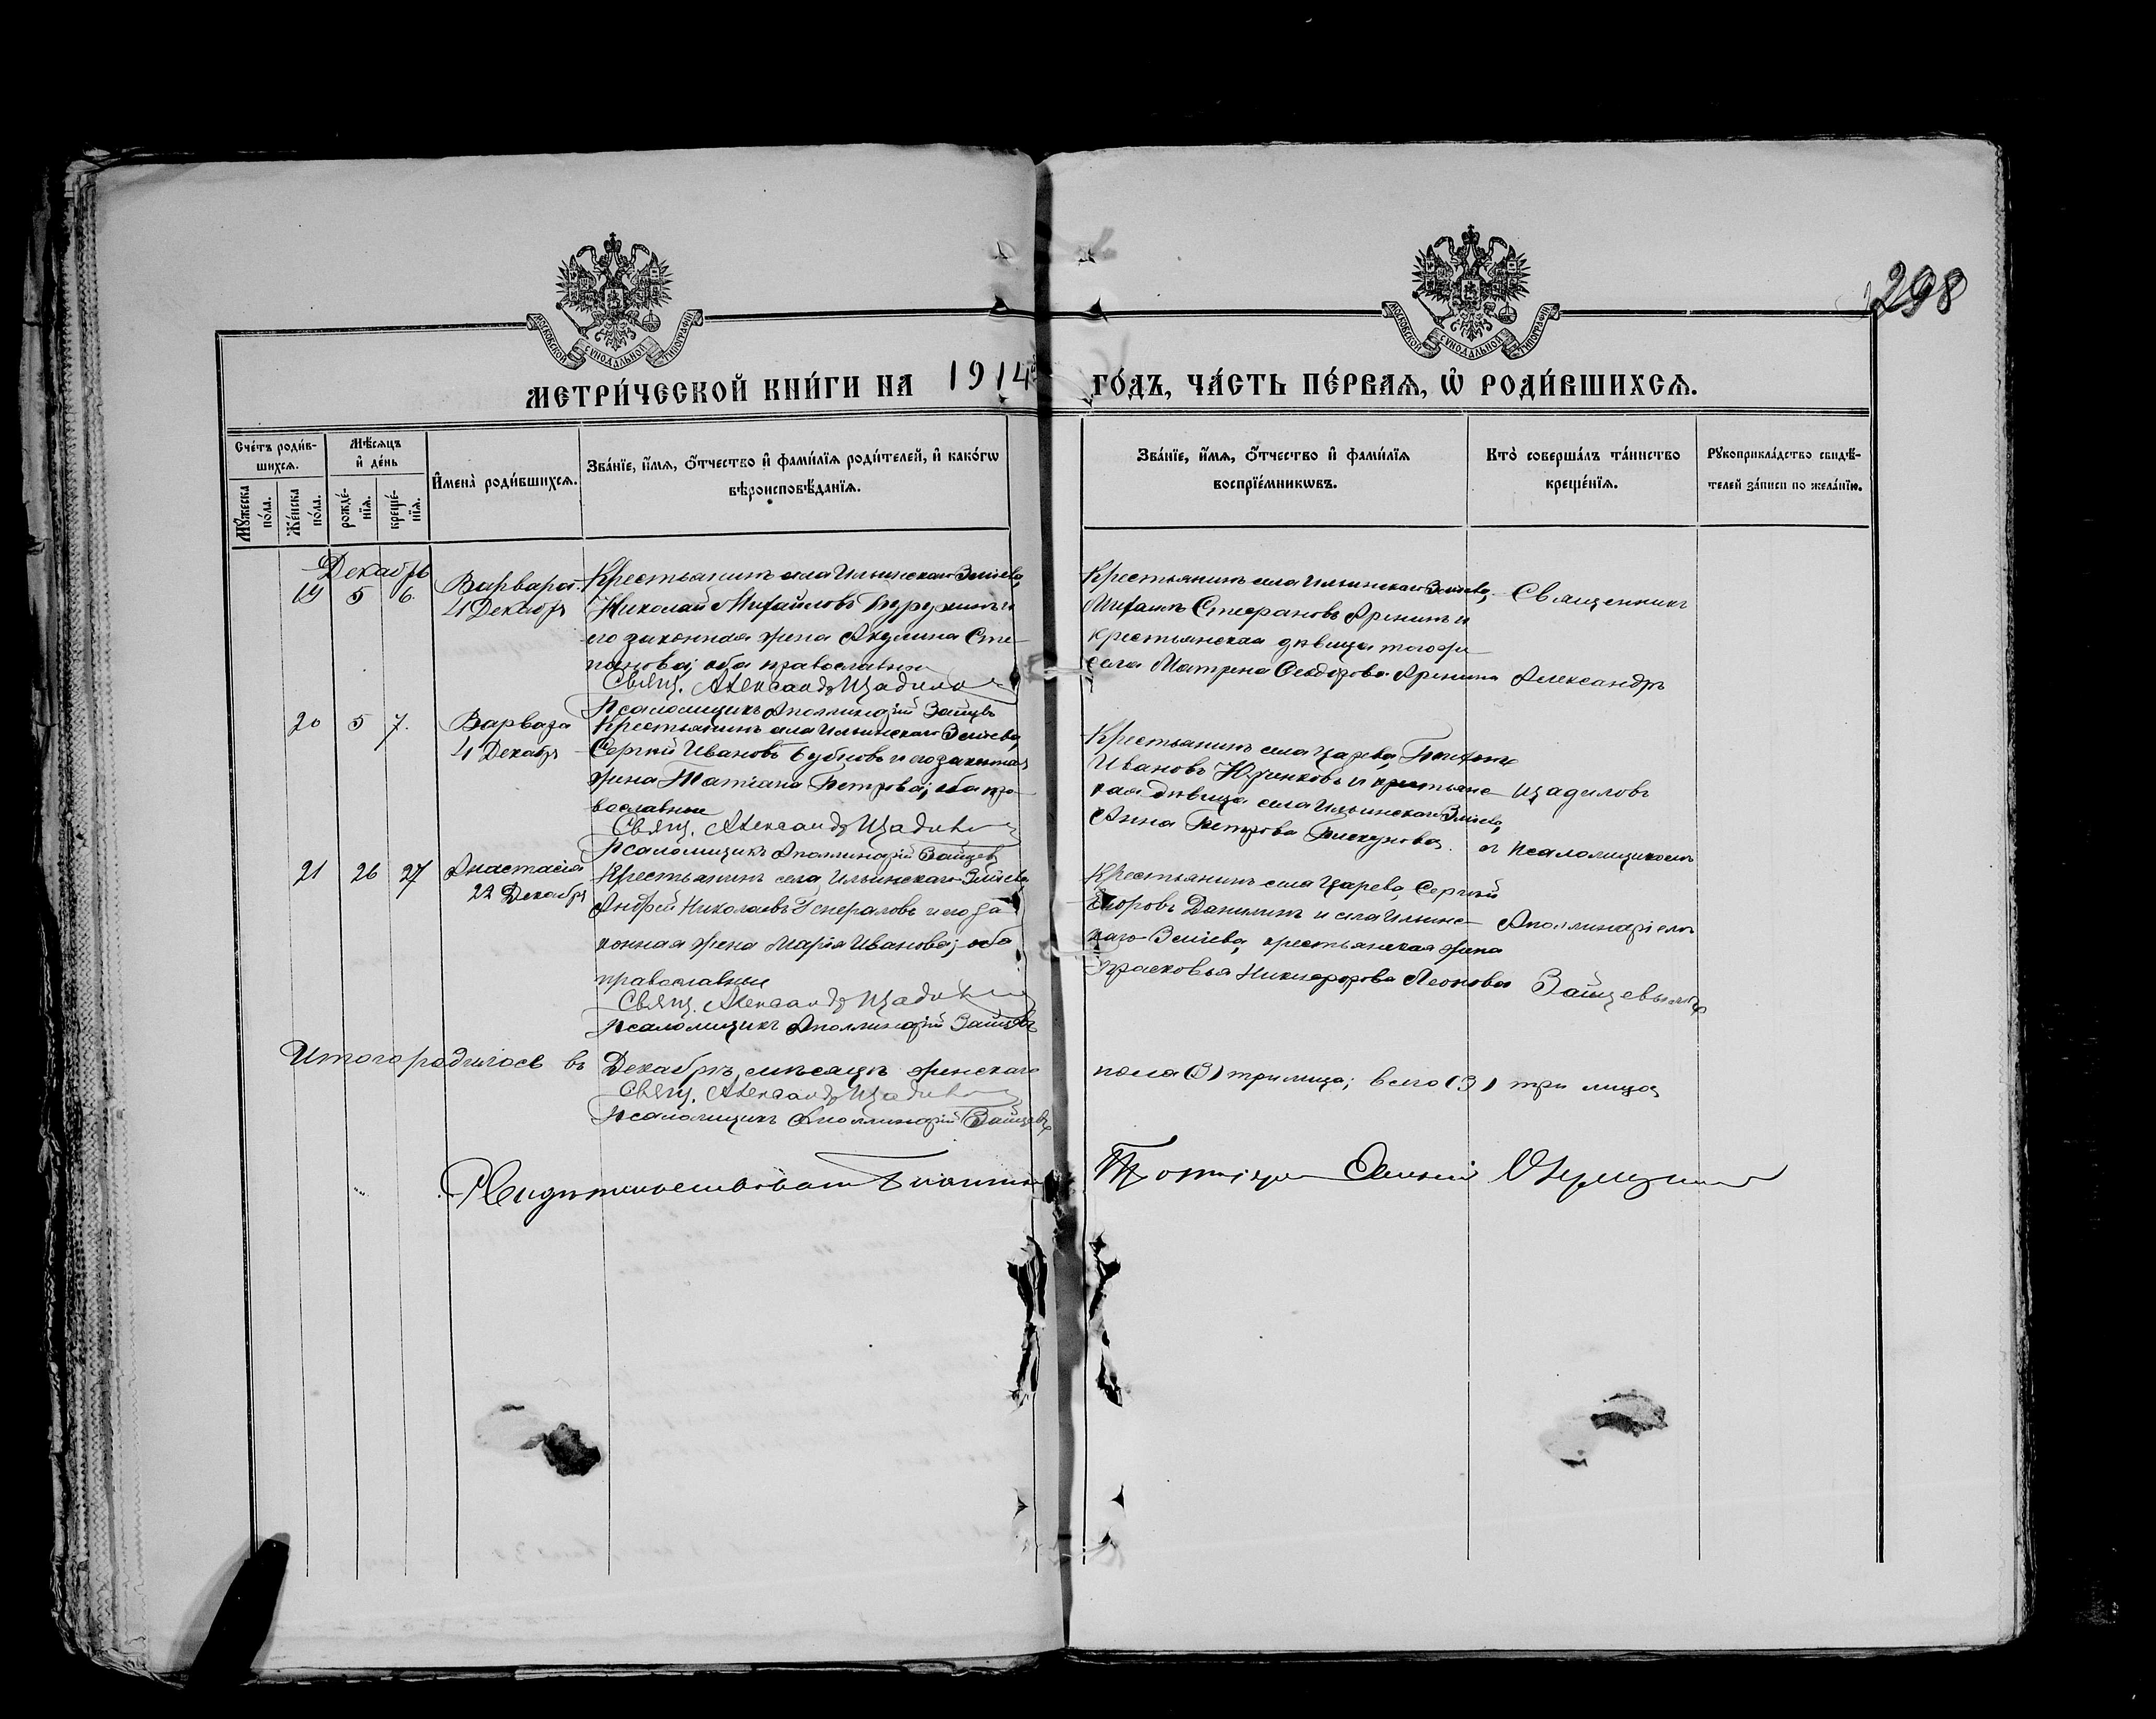 МОСКОВСКОЙ СѴНОДАЛЬНОЙ ТИПОГРАФІИ
МОСКОВСКОЙ СѴНОДАЛЬНОЙ ТИПОГРАФІИ
298
МЕТРИ́ЧЕСКОЙ КНИ́ГИ НА 1914 ГО́ДЪ, ЧА́СТЬ ПЕ́РВАѦ, Ѡ҆ РОДИ́ВШИХСѦ.
Сче́тъ роди́в-
шихсѧ.
Мꙋ́жеска
по́ла.
Же́нска
по́ла.
Мѣ́сѧцъ
и҆ де́нь
рожде́-
нїѧ.
креще́-
нїѧ.
И҆мена̀ роди́вшихсѧ.
Зва́нїе, и҆́мѧ, ѻ҆́тчество и҆ фами́лїѧ роди́телей, и҆ како́гѡ
вѣроисповѣ́данїѧ.
Зва́нїе, и҆́мѧ, ѻ҆́тчество и҆ фами́лїѧ
воспрїе́мникѡвъ.
Кто̀ соверша́лъ та́инство
креще́нїѧ.
Рꙋкоприкла́дство свидѣ́-
телей за́писи по жела́нїю.
Декабрь
19 5 6.
Варвара
4 Декабря
Крестьянинъ села Ильинскаго Зміева,
Николай Михайловъ и
его законная жена Акулина Сте-
панова; оба православные
Свящ. Александръ Цадиловъ
Псаломщикъ Аполлинарій Зайцевъ
Крестьянинъ села Ильинскаго Зміева,
Михаилъ Стефановъ Аренинъ и
крестьянская дѣвица того же
села Матрена Ѳеодорова Аренина
Священникъ
Александръ
20 5 7.
Варвара
4 Декабря
Крестьянинъ села Ильинскаго Зміева,
Сергѣй Ивановъ и его законная
жена Татіана Петрова; оба пра-
вославные
Свящ. Александръ Цадиловъ
Псаломщикъ Аполлинарій Зайцевъ
Крестьянинъ села Царева,
Ивановъ и крестьянс-
кая дѣвица села Ильинскаго Зміева,
Анна Петрова
Цадиловъ
съ псаломщикомъ
21 26 27
Анастасія
22 Декабря
Крестьянинъ села Ильинскаго Зміева,
Андрей Николаевъ Генераловъ и его за-
конная жена Марія Иванова; оба
православные
Свящ. Александръ Цадиловъ
Псаломщикъ Аполлинарій Зайцевъ
Крестьянинъ села Царева, Сергѣй
Егоровъ Данилинъ и села Ильинс-
каго Зміева, крестьянская жена
Прасковья Никифорова Леонова
Аполлинаріемъ
Зайцевымъ
Итого родилось въ Декабрѣ мѣсяцѣ женскаго пола (3) три лица; всего (3) три лица
Свящ. Александръ Цадиловъ
Псаломщикъ Аполлинарій Зайцевъ